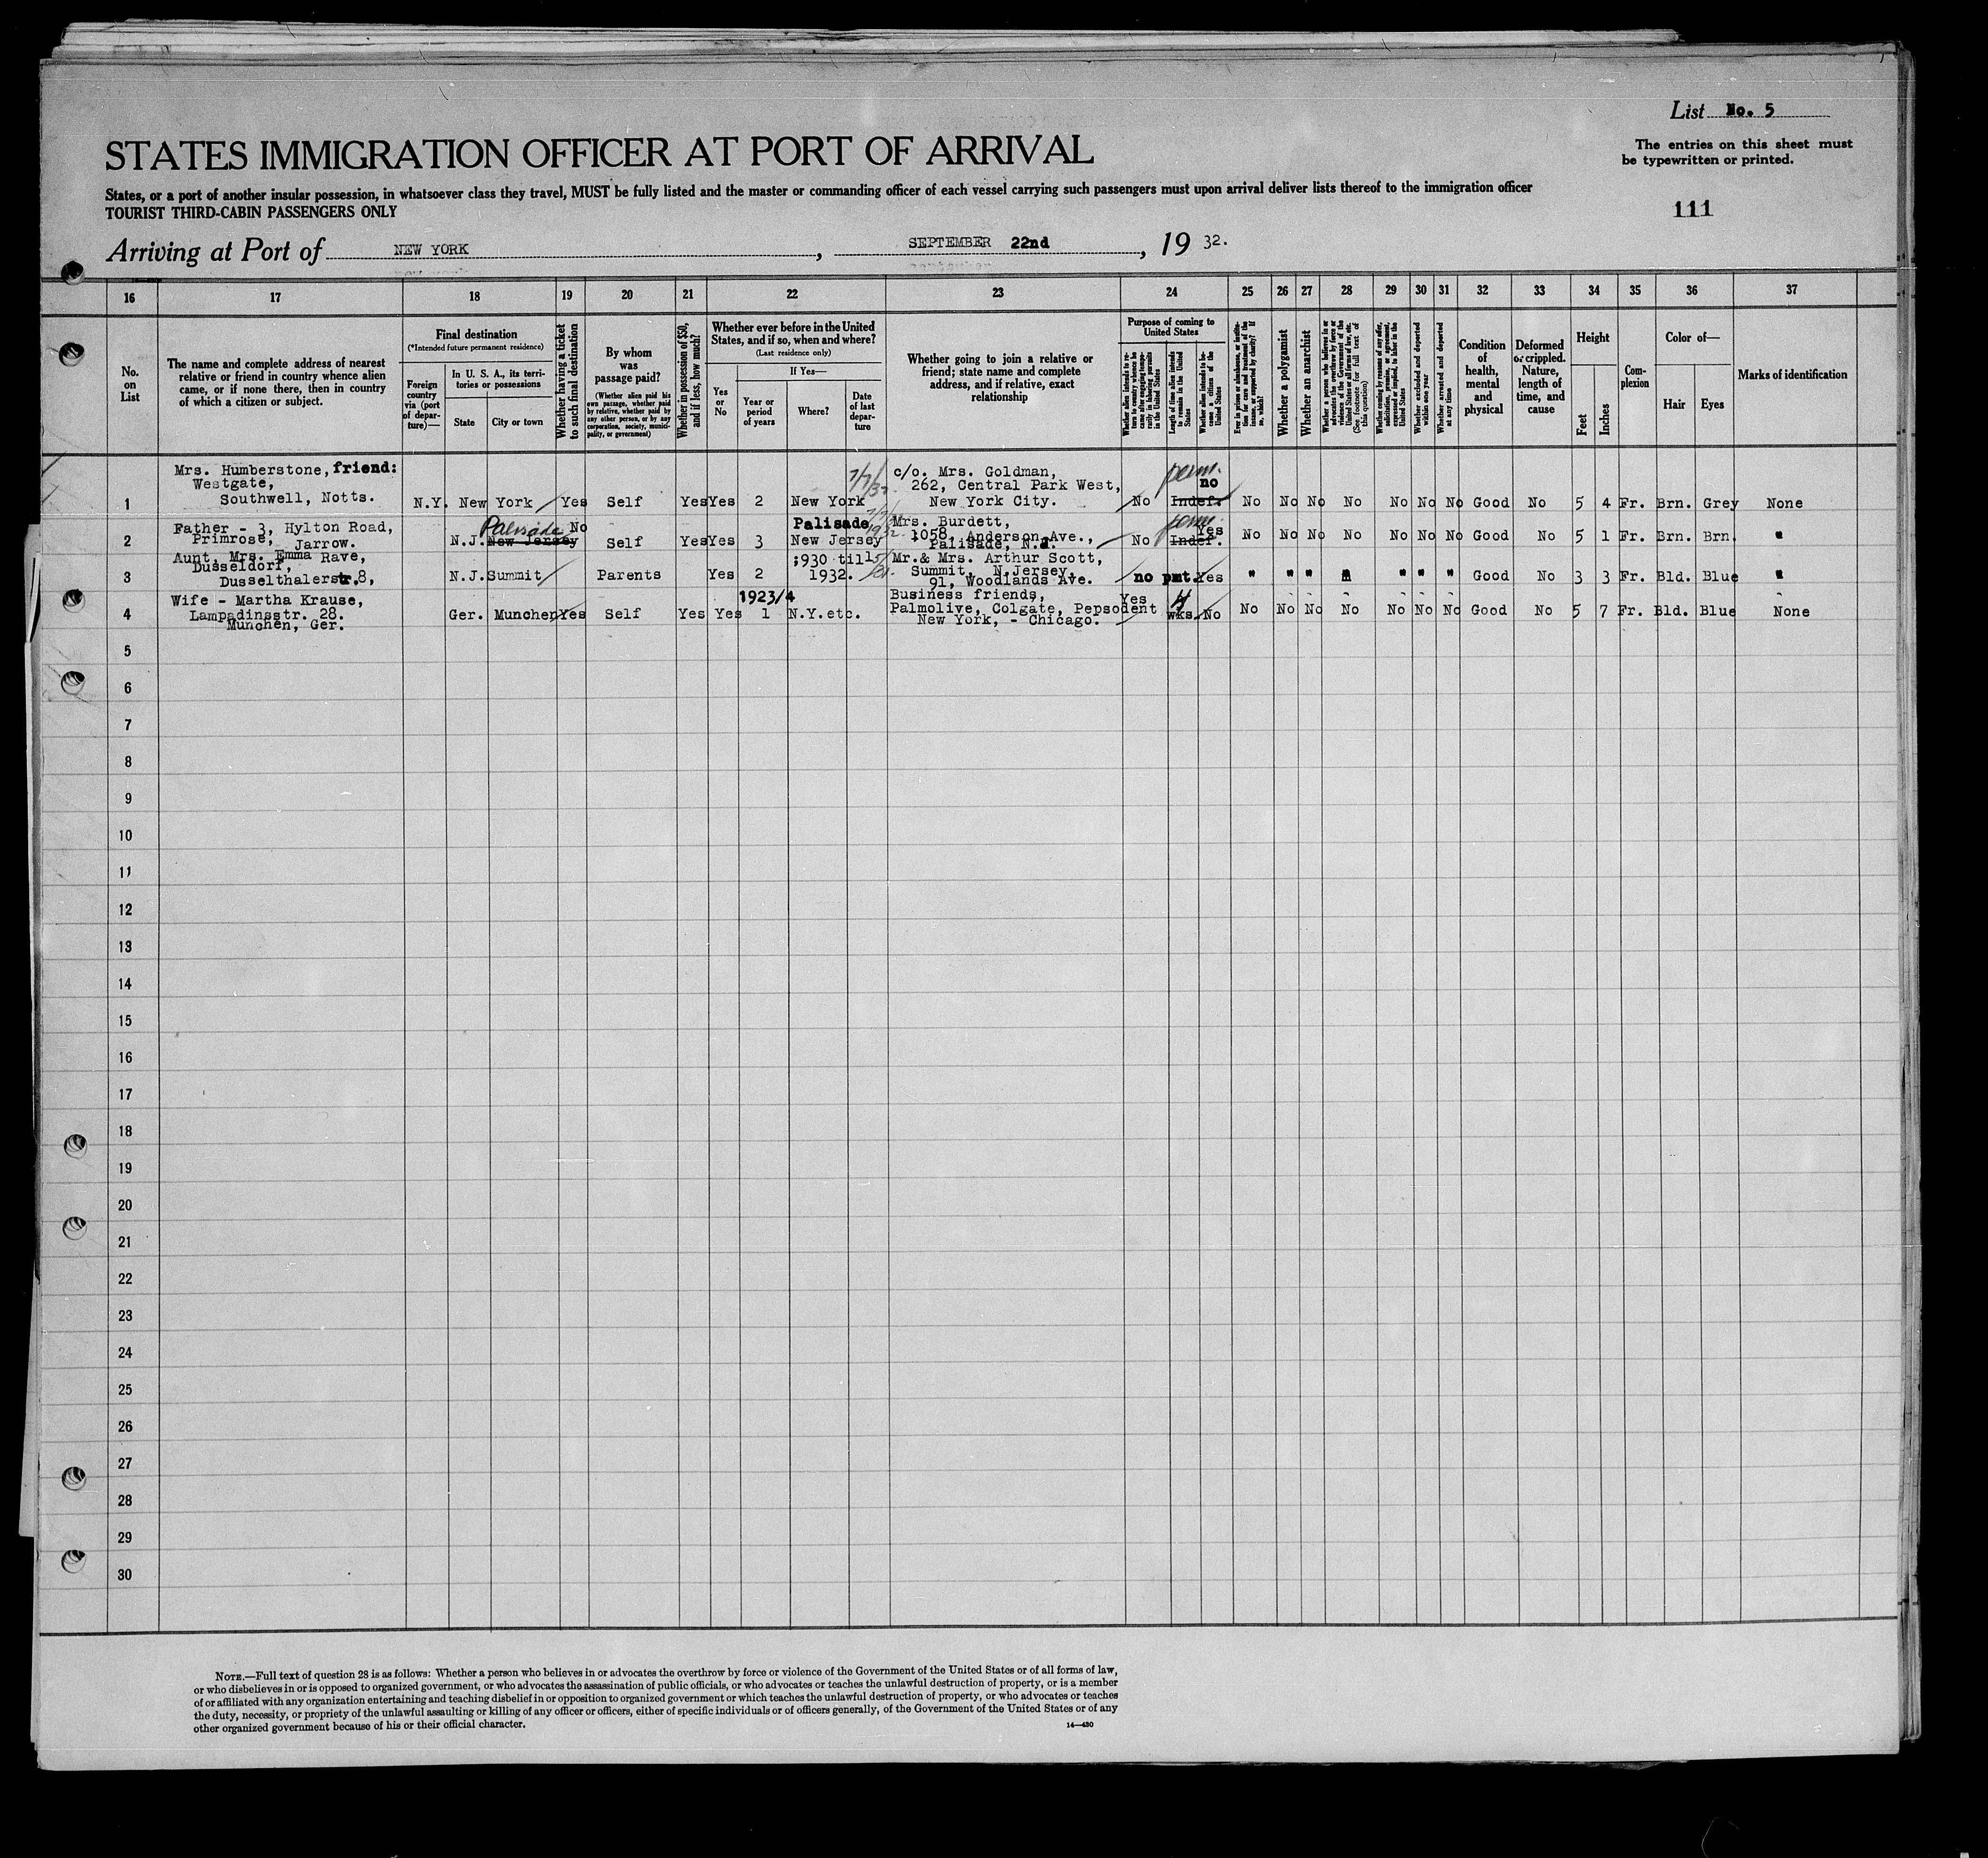 List No. 5
The entries on this sheet must
be typewritten or printed.
STATES IMMIGRATION OFFICER AT PORT OF ARRIVAL
States, or a port of another insular possession, in whatsoever class they travel, MUST be fully listed and the master or commanding officer of each vessel carrying such passengers must upon arrival deliver lists thereof to the immigration officer
TOURIST THIRD-CABIN PASSENGERS ONLY
111
Arriving at Port of NEW YORK, SEPTEMBER 22nd, 19 32.
16 17 18 19 20 21 22 23 24 25 26 27 28 29 30 31 32 33 34 35 36 37
No.
on
List
The name and complete address of nearest
relative or friend in country whence alien
came, or if none there, then in country
of which a citizen or subject.
Final destination
(*Intended future permanent residence)
Foreign
country
via (port
of depar-
ture)—
In U. S. A., its terri-
tories or possessions
State
City or town
Whether having a ticket
to such final destination
By whom
was
passage paid?
(Whether alien paid his
own passage, whether paid
by relative, whether paid by
any other person, or by any
corporation, society, munici-
pality, or government)
Whether in possession of $50,
and if less, how much?
Whether ever before in the United
States, and if so, when and where?
(Last residence only)
Yes
or
No
If Yes—
Year or
period
of years
Where?
Date
of last
depar-
ture
Whether going to join a relative or
friend; state name and complete
address, and if relative, exact
relationship
Purpose of coming to
United States
Whether alien intends to re-
turn to country whence he
came after engaging tempo-
rarily in laboring pursuits
in the United States
Length of time alien intends
to remain in the United
States
Whether alien intends to be-
come a citizen of the
United States
Ever in prison or almshouse, or institu-
tion for care and treatment of the
insane, or supported by charity? If
so, which?
Whether a polygamist
Whether an anarchist
Whether a person who believes in or
advocates the overthrow by force or
violence of the Government of the
United States or all forms of law, etc.
(See footnote for full text of
this question)
Whether coming by reason of any offer,
solicitation, promise, or agreement,
expressed or implied, to labor in the
United States
Whether excluded and deported
within one year
Whether arrested and deported
at any time
Condition
of
health,
mental
and
physical
Deformed
or crippled.
Nature,
length of
time, and
cause
Height
Feet
Inches
Com-
plexion
Color of—
Hair
Eyes
Marks of identification
Mrs. Humberstone, friend: 7/7/32. c/o. Mrs. Goldman, perm.
Westgate, 262, Central Park West, no
1 Southwell, Notts. N.Y. New York Yes Self Yes Yes 2 New York New York City. No Indef. No No No No No No No Good No 5 4 Fr. Brn. Grey None
Father - 3, Hylton Road, Palisade No Palisade Mrs. Burdett, perm.
Primrose, 1058, Anderson Ave., Yes
2 Jarrow. N.J. New Jersey Self Yes Yes 3 New Jersey Palisade, N.J. No Indef. No No No No No No No Good No 5 1 Fr. Brn. Brn. "
Aunt, Mrs. Emma Rave, 1930 till Mr.& Mrs. Arthur Scott,
Dusseldorf, Summit, N.Jersey,
3 Dusselthalerstr.8, N.J. Summit Parents Yes 2 1932. 91, Woodlands Ave. no pmt. Yes " " " " " " " Good No 3 3 Fr. Bld. Blue "
Wife - Martha Krause, 1923/4 Business friends, Yes 4
4 Lampadinsstr. 28. Ger. Munchen Yes Self Yes Yes 1 N.Y.etc. Palmolive, Colgate, Pepsodent wks. No No No No No No No No Good No 5 7 Fr. Bld. Blue None
Munchen, Ger. New York, - Chicago.
5
6
7
8
9
10
11
12
13
14
15
16
17
18
19
20
21
22
23
24
25
26
27
28
29
30
NOTE.—Full text of question 28 is as follows: Whether a person who believes in or advocates the overthrow by force or violence of the Government of the United States or of all forms of law,
or who disbelieves in or is opposed to organized government, or who advocates the assassination of public officials, or who advocates or teaches the unlawful destruction of property, or is a member
of or affiliated with any organization entertaining and teaching disbelief in or opposition to organized government or which teaches the unlawful destruction of property, or who advocates or teaches
the duty, necessity, or propriety of the unlawful assaulting or killing of any officer or officers, either of specific individuals or of officers generally, of the Government of the United States or of any
other organized government because of his or their official character.
14—430